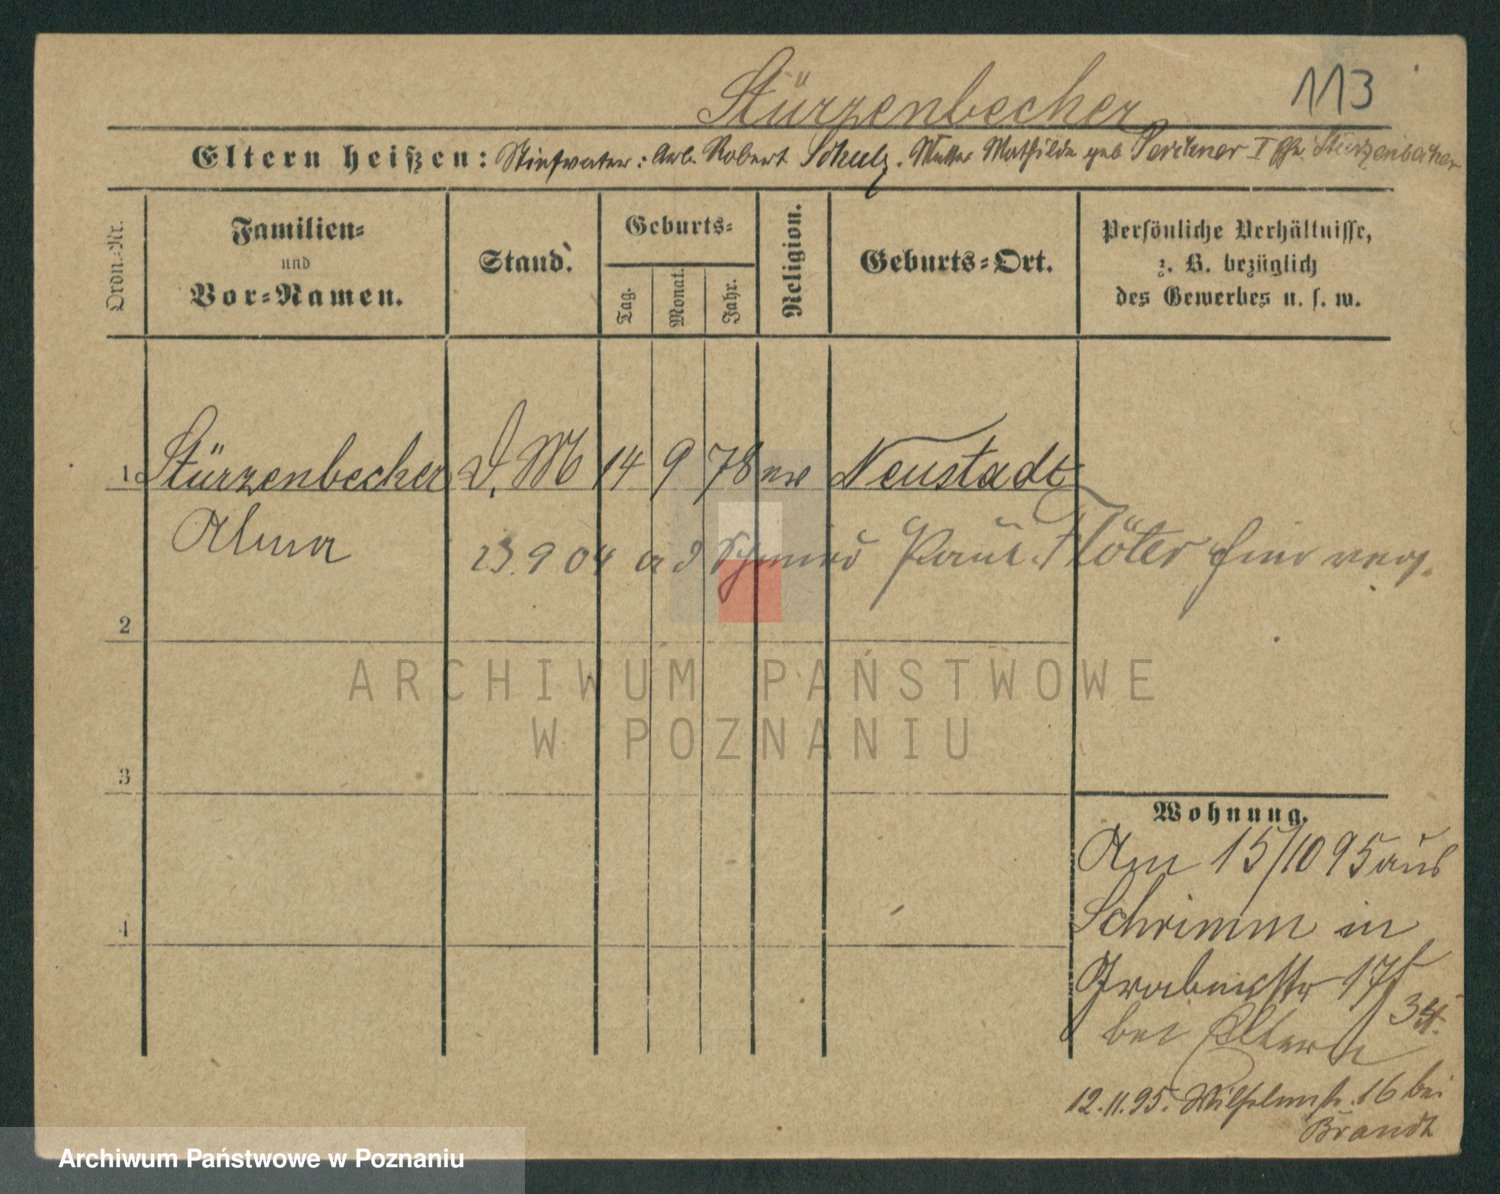 Stürzenbecher
113
Eltern heißen: Stiefvater: Arb. Robert Schulz. Mutter Mathilde geb I Ehe Stürzenbecher
Ordn.-Nr.
Familien-
und
Vor-Namen.
Stand.
Geburts-
Tag.
Monat.
Jahr.
Religion.
Geburts-Ort.
Persönliche Verhältnisse,
z. B. bezüglich
des Gewerbes u. s. w.
1 Stürzenbecher D. M 14 9 78 ev Neustadt
Alma
23.9 04 a d Schmied Paul Flöter hier verh.
2
3
4
Wohnung.
Am 15/10 95 aus
Schrimm in
Grabenstr 17
3 St.
bei Eltern
12.11.95. Wilhelmstr. 16 bei
Brandt
ARCHIWUM PAŃSTWOWE
W POZNANIU
Archiwum Państwowe w Poznaniu